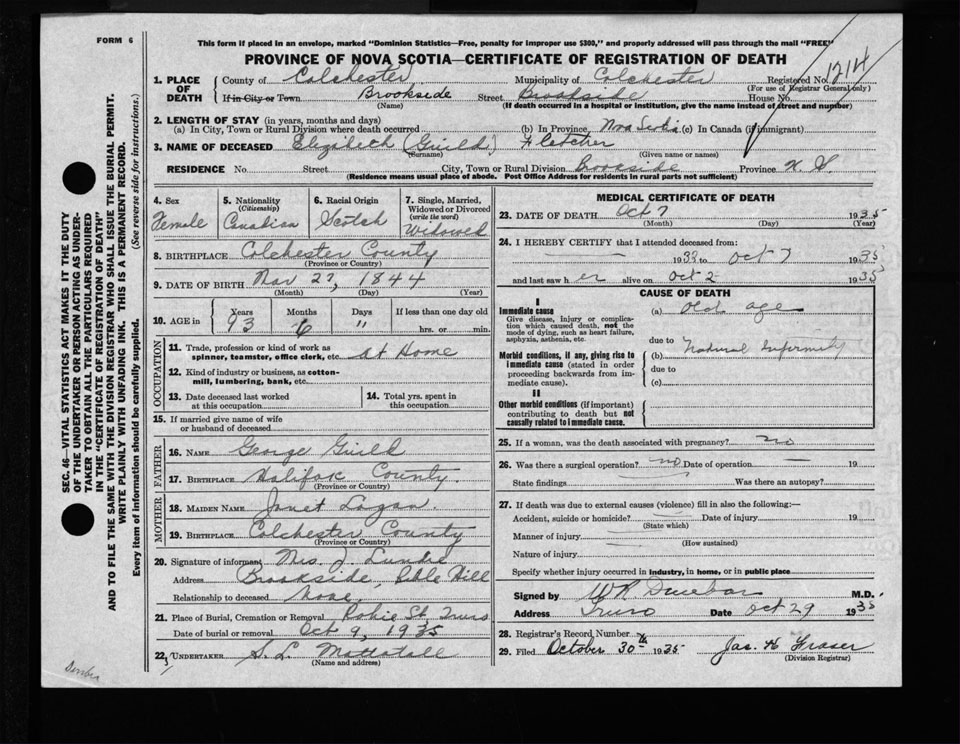 FORM 6
This form if placed in an envelope, marked "Dominion Statistics—Free, penalty for improper use $300," and properly addressed will pass through the mail "FREE"
PROVINCE OF NOVA SCOTIA—CERTIFICATE OF REGISTRATION OF DEATH
1214
1. PLACE OF DEATH
County of Colchester Municipality of Colchester Registered No.
(For use of Registrar General only)
If in City or Town Brookside Street Brookside House No.
(Name) (If death occurred in a hospital or institution, give the name instead of street and number)
2. LENGTH OF STAY (in years, months and days)
(a) In City, Town or Rural Division where death occurred (b) In Province Nova Scotia (c) In Canada (if immigrant)
3. NAME OF DECEASED Elizabeth (Guild) Fletcher
(Surname) (Given name or names)
RESIDENCE No. Street City, Town or Rural Division Brookside Province N. S.
(Residence means usual place of abode. Post Office Address for residents in rural parts not sufficient)
4. Sex
Female
5. Nationality
(Citizenship)
Canadian
6. Racial Origin
Scotch
7. Single, Married, Widowed or Divorced (write the word)
Widowed
8. BIRTHPLACE Colchester County
(Province or Country)
9. DATE OF BIRTH Mar 27, 1844
(Month) (Day) (Year)
10. AGE in Years Months Days If less than one day old
93 6 " hrs. or min.
OCCUPATION
11. Trade, profession or kind of work as spinner, teamster, office clerk, etc. At Home
12. Kind of industry or business, as cotton-mill, lumbering, bank, etc.
13. Date deceased last worked at this occupation
14. Total yrs. spent in this occupation
15. If married give name of wife or husband of deceased
FATHER
16. NAME George Guild
17. BIRTHPLACE Halifax County
(Province or Country)
MOTHER
18. MAIDEN NAME Janet Logan
19. BIRTHPLACE Colchester County
(Province or Country)
20. Signature of informant Mrs. J. Lundie
Address Brookside, Bible Hill
Relationship to deceased None
21. Place of Burial, Cremation or Removal Robie St. Truro
Date of burial or removal Oct 9, 1935
22. UNDERTAKER S. L. Mattatall
(Name and address)
MEDICAL CERTIFICATE OF DEATH
23. DATE OF DEATH Oct 7 1935
(Month) (Day) (Year)
24. I HEREBY CERTIFY that I attended deceased from:
1933 to Oct 7 1935
and last saw her alive on Oct 2 1935
CAUSE OF DEATH
I
Immediate cause
Give disease, injury or complication which caused death, not the mode of dying, such as heart failure, asphyxia, asthenia, etc.
(a) Old age
due to
Morbid conditions, if any, giving rise to immediate cause (stated in order proceeding backwards from immediate cause).
(b) Natural Infirmity
due to
(c)
II
Other morbid conditions (if important) contributing to death but not causally related to immediate cause.
25. If a woman, was the death associated with pregnancy? no
26. Was there a surgical operation? no Date of operation 19
State findings Was there an autopsy?
27. If death was due to external causes (violence) fill in also the following:—
Accident, suicide or homicide? Date of injury 19
(State which)
Manner of injury
(How sustained)
Nature of injury
Specify whether injury occurred in industry, in home, or in public place
Signed by W R Dunbar M.D.
Address Truro Date Oct 29 1935
28. Registrar's Record Number
29. Filed October 30th 1935 Jas. H Fraser
(Division Registrar)
SEC. 46—VITAL STATISTICS ACT MAKES IT THE DUTY
OF THE UNDERTAKER OR PERSON ACTING AS UNDER-
TAKER TO OBTAIN ALL THE PARTICULARS REQUIRED
IN THE "CERTIFICATE OF REGISTRATION OF DEATH"
AND TO FILE THE SAME WITH THE DIVISION REGISTRAR WHO SHALL ISSUE THE BURIAL PERMIT.
WRITE PLAINLY WITH UNFADING INK. THIS IS A PERMANENT RECORD.
Every item of information should be carefully supplied. (See reverse side for instructions.)